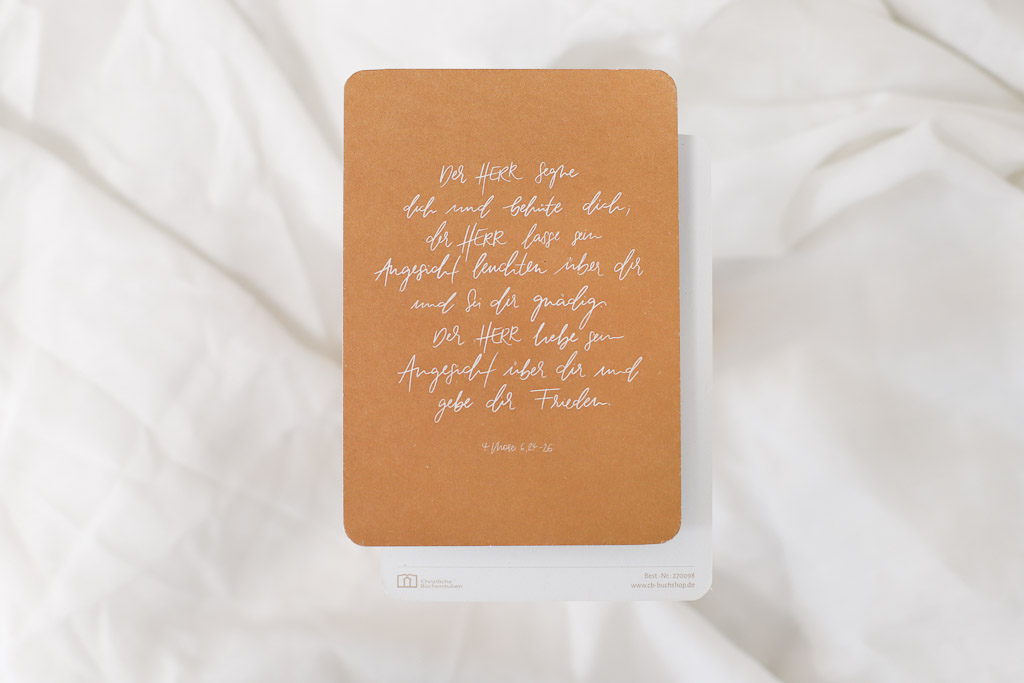 Der HERR segne
dich und behüte dich;
der HERR lasse sein
Angesicht leuchten über dir
und sei dir gnädig;
Der HERR hebe sein
Angesicht über dir und
gebe dir Frieden.
4 Mose 6,24-26
Christliche
Bücherstuben
Best.-Nr. 270098
www.cb-buchshop.de